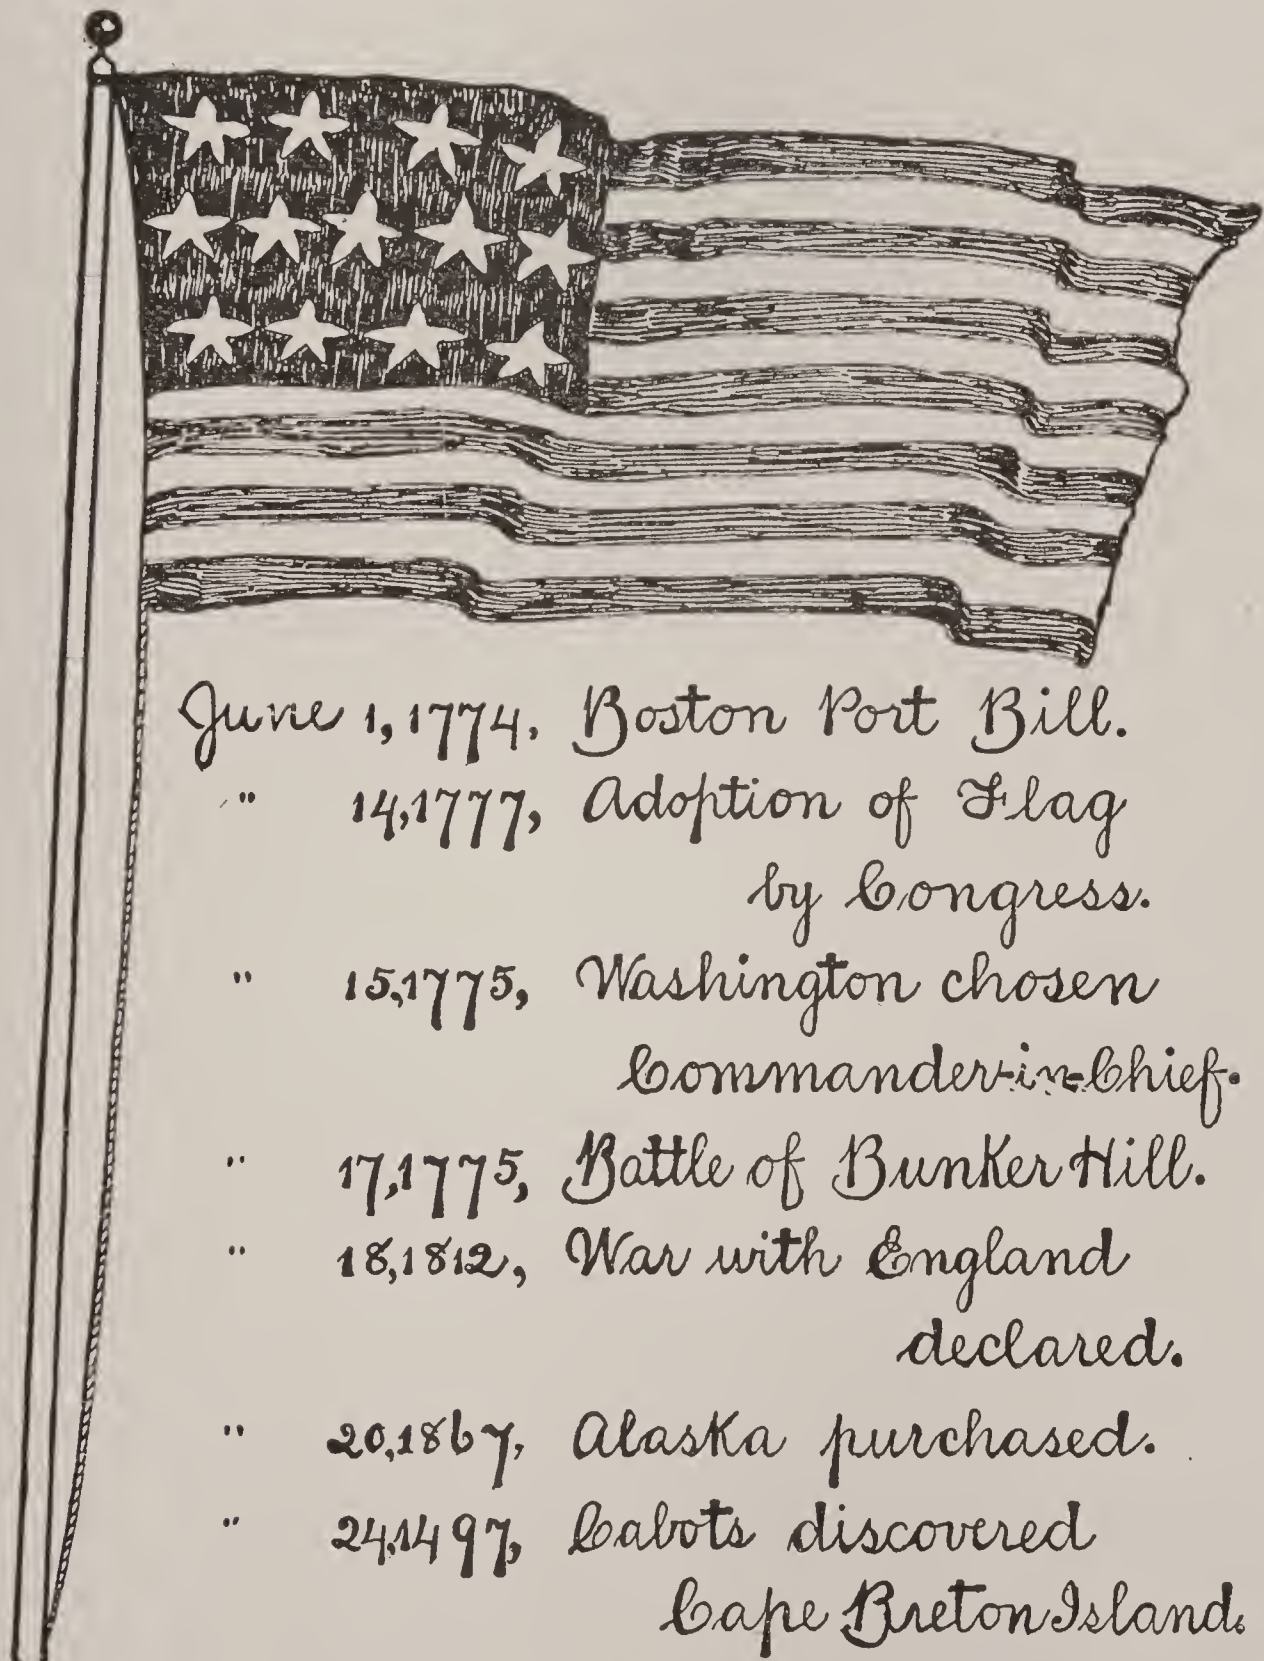 June 1, 1774, Boston Port Bill.
" 14, 1777, Adoption of Flag
by Congress.
" 15, 1775, Washington chosen
Commander-in-Chief.
" 17, 1775, Battle of Bunker Hill.
" 18, 1812, War with England
declared.
" 20, 1867, Alaska purchased.
" 24, 1497, Cabots discovered
Cape Breton Island.